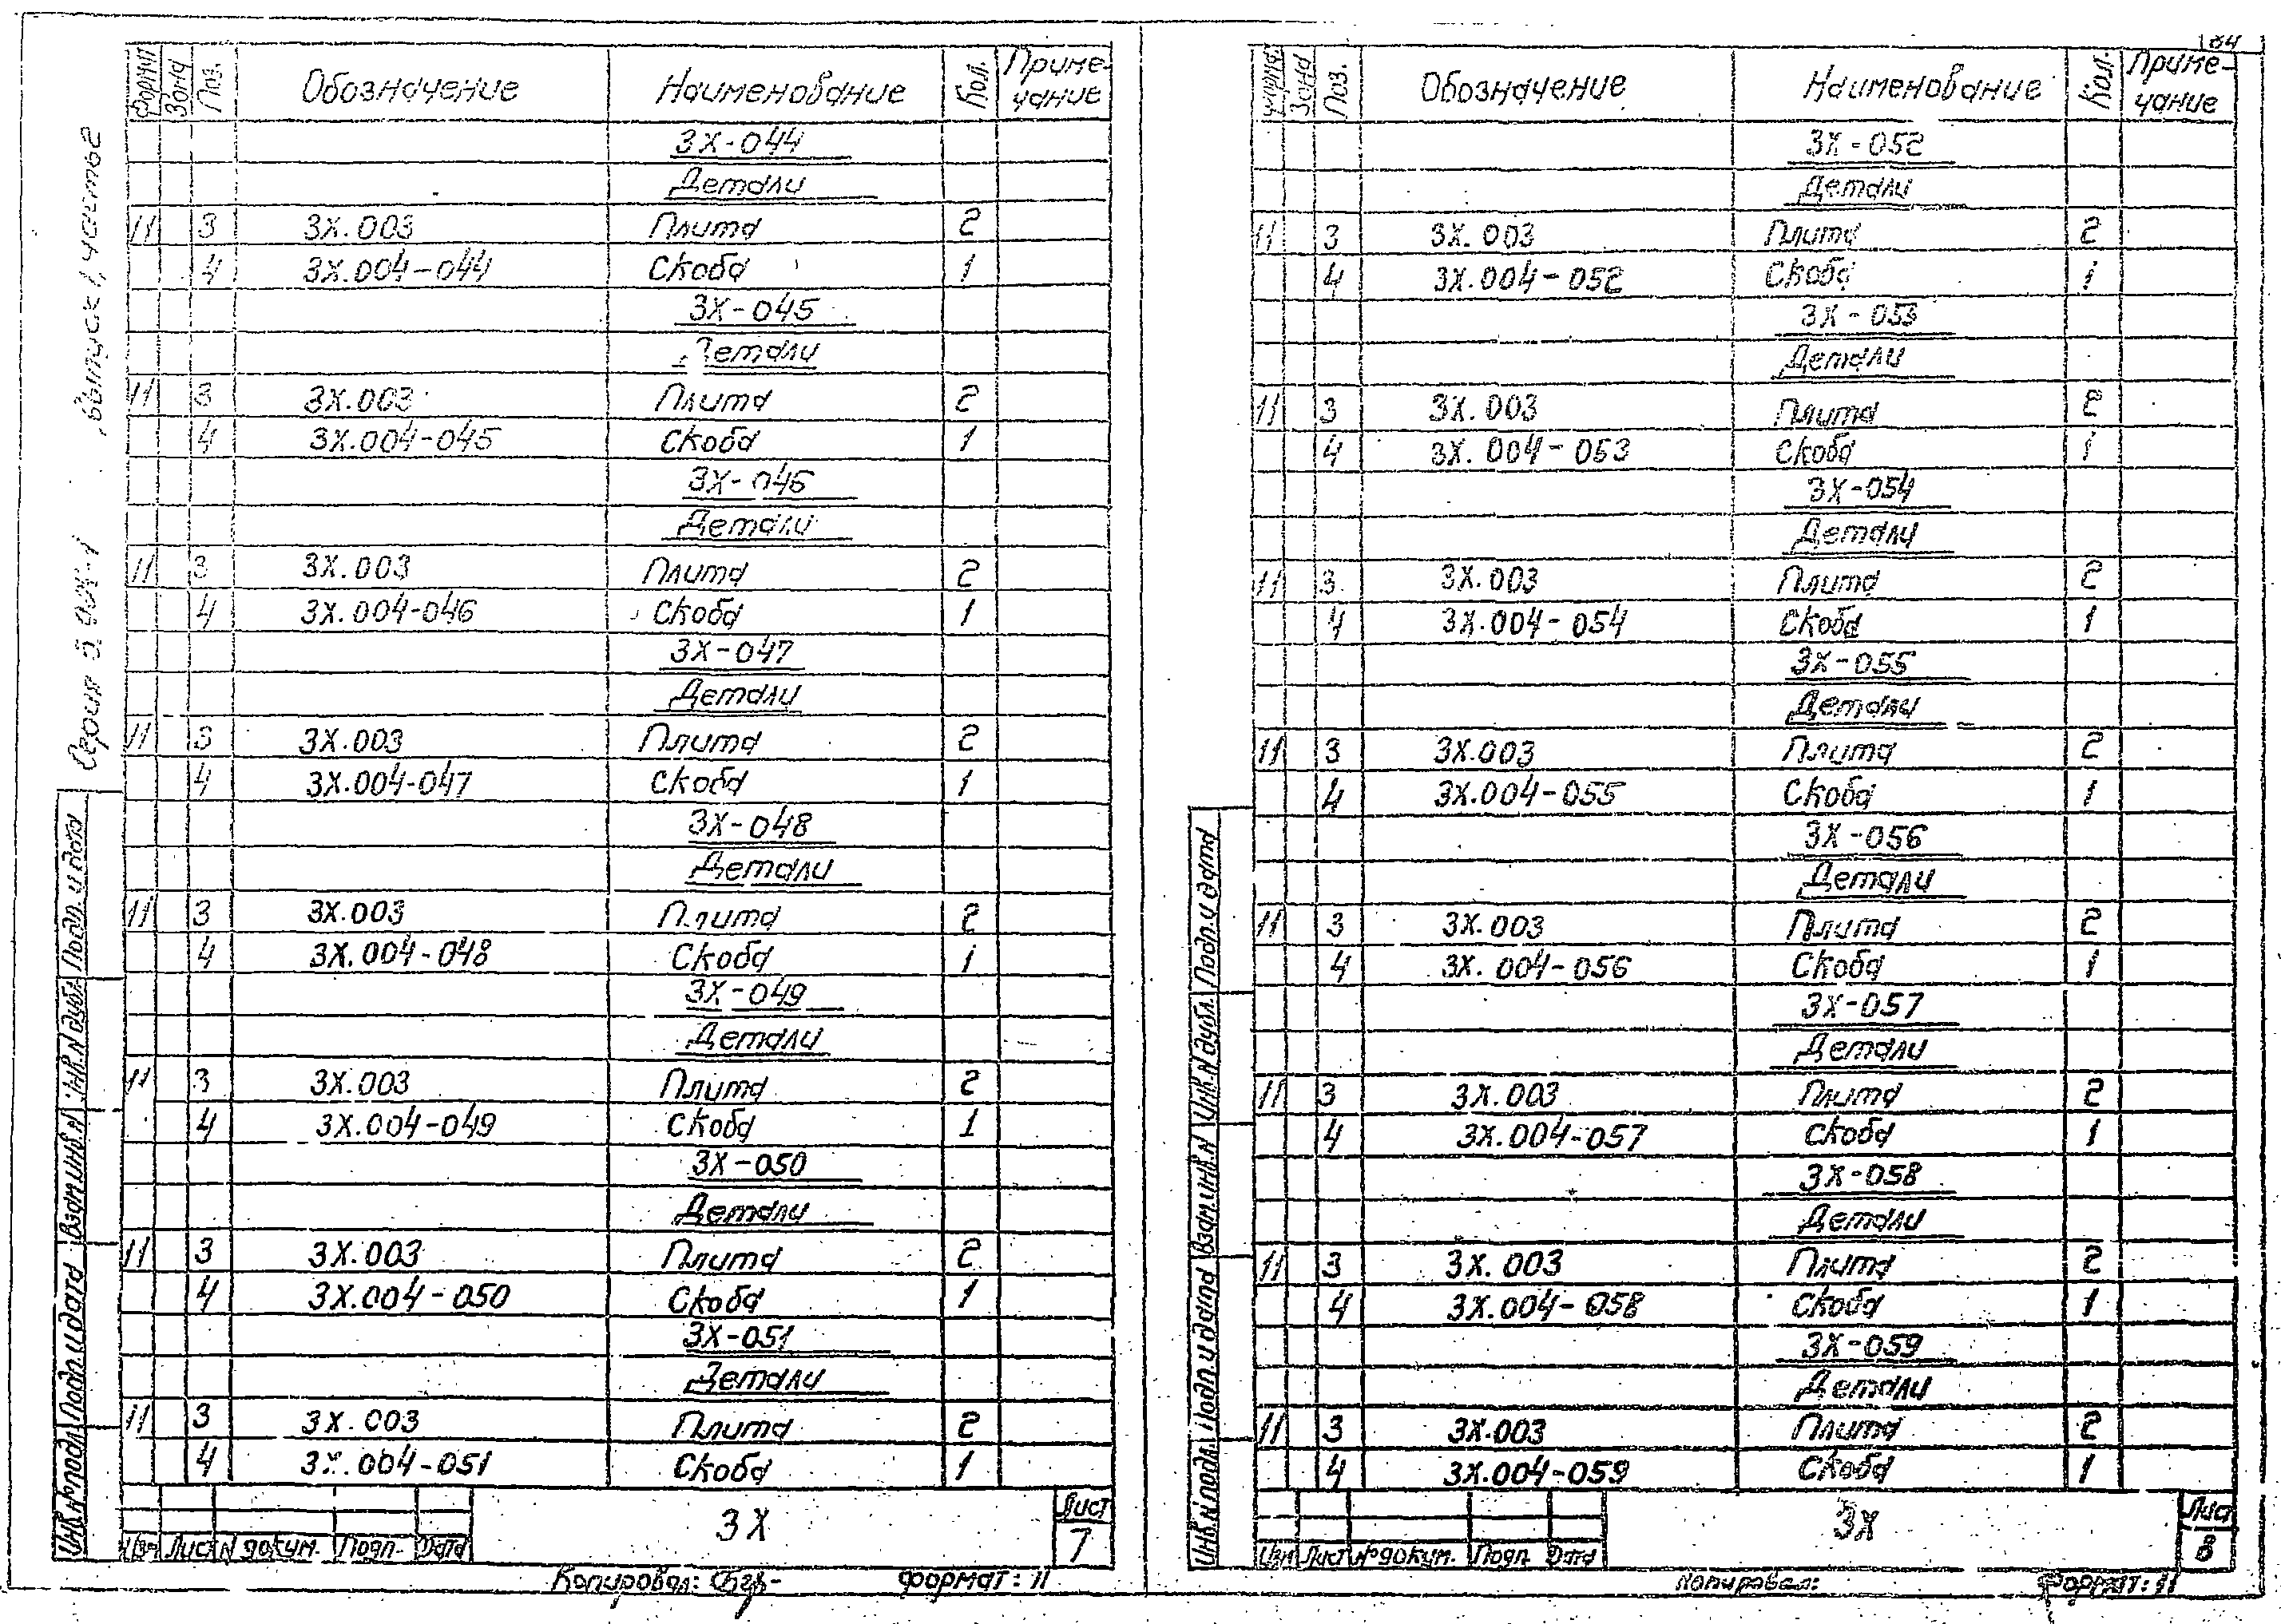 Формат Зона Поз. Обозначение Наименование Кол. Приме-чание
3Х-044
Детали
11 3 3Х.003 Плита 2
4 3Х.004-044 Скоба 1
3Х-045
Детали
11 3 3Х.003 Плита 2
4 3Х.004-045 Скоба 1
3Х-046
Детали
11 3 3Х.003 Плита 2
4 3Х.004-046 Скоба 1
3Х-047
Детали
11 3 3Х.003 Плита 2
4 3Х.004-047 Скоба 1
3Х-048
Детали
11 3 3Х.003 Плита 2
4 3Х.004-048 Скоба 1
3Х-049
Детали
11 3 3Х.003 Плита 2
4 3Х.004-049 Скоба 1
3Х-050
Детали
11 3 3Х.003 Плита 2
4 3Х.004-050 Скоба 1
3Х-051
Детали
11 3 3Х.003 Плита 2
4 3Х.004-051 Скоба 1
Изм Лист N докум. Подп. Дата
3Х
Лист
7
Копировал:
Формат: 11
Серия
выпуск 1, часть 2
Инв. № подл. Подп. и дата Взам инв. N Инв. N дубл. Подп. и дата
84
Зона Поз. Обозначение Наименование Кол. Приме-чание
3Х-052
Детали
11 3 3Х.003 Плита 2
4 3Х.004-052 Скоба 1
3Х-053
Детали
11 3 3Х.003 Плита 2
4 3Х.004-053 Скоба 1
3Х-054
Детали
11 3 3Х.003 Плита 2
4 3Х.004-054 Скоба 1
3Х-055
Детали
11 3 3Х.003 Плита 2
4 3Х.004-055 Скоба 1
3Х-056
Детали
11 3 3Х.003 Плита 2
4 3Х.004-056 Скоба 1
3Х-057
Детали
11 3 3Х.003 Плита 2
4 3Х.004-057 Скоба 1
3Х-058
Детали
11 3 3Х.003 Плита 2
4 3Х.004-058 Скоба 1
3Х-059
Детали
11 3 3Х.003 Плита 2
4 3Х.004-059 Скоба 1
Изм Лист № докум. Подп. Дата
3Х
Лист
8
Копировал:
Формат: 11
Инв. N подл. Подп. и дата Взам инв. N Инв. N дубл. Подп. и дата